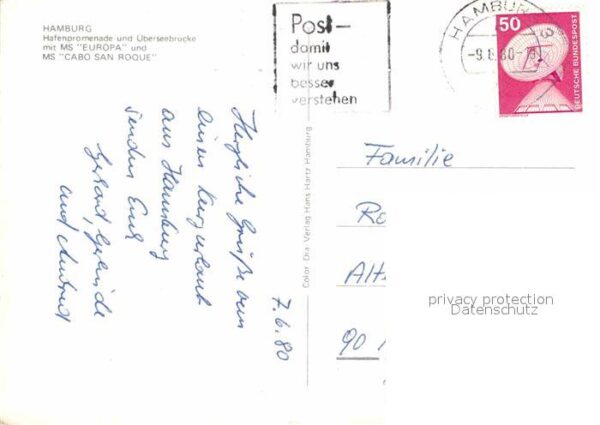 HAMBURG
Hafenpromenade und Überseebrücke
mit MS "EUROPA" und
MS "CABO SAN ROQUE"
Post-
damit
wir uns
besser
verstehen
HAMBURG
-9.6.80-
50
DEUTSCHE BUNDESPOST
Herzliche Grüße vom
einen Kurzurlaub
aus Hamburg
senden Euch
Gerhard, Gerlinde
und
7.6.80
Color Dia Verlag Hans Hartz Hamburg
Familie
Ro
Alt
90
privacy protection
Datenschutz